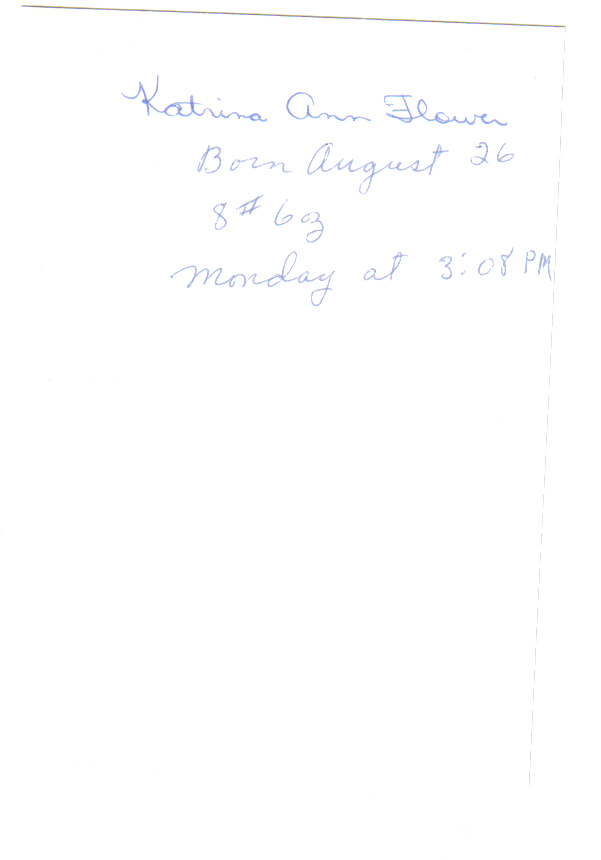 Katrina Ann Flower
Born August 26
8# 6 oz
Monday at 3:08 PM